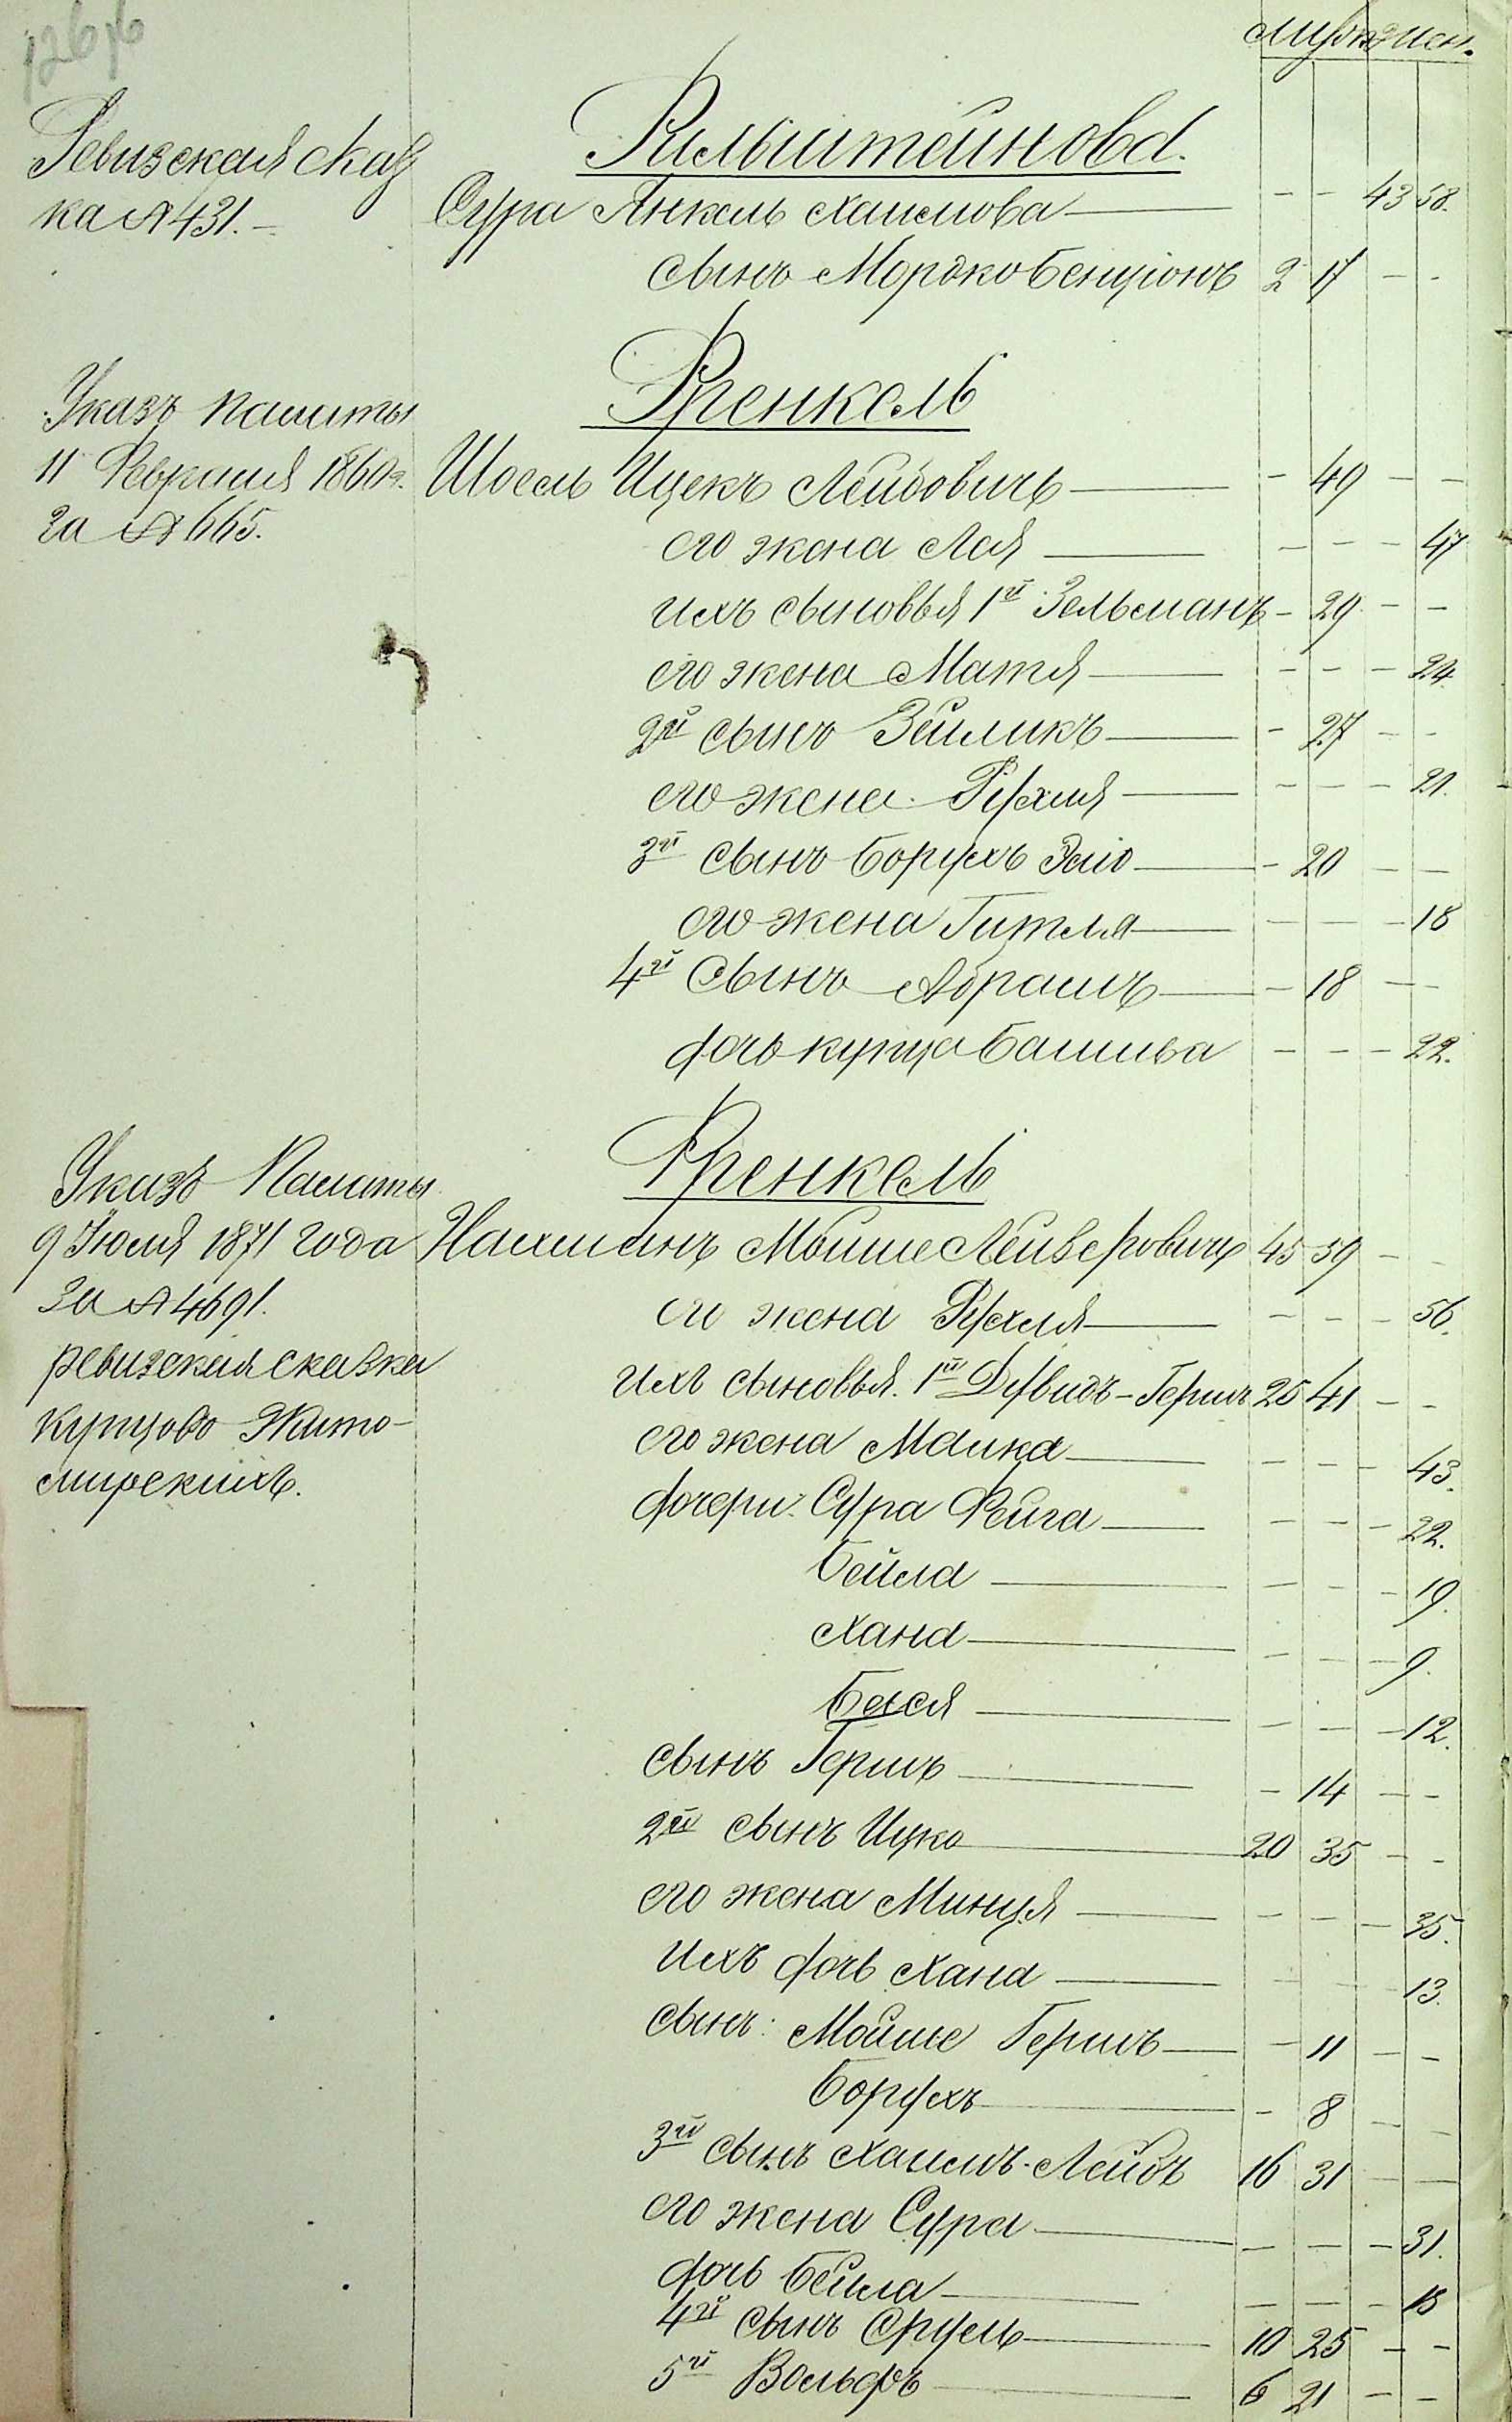 126 об
муж. жен.
Ревизская сказ
ка № 431. —
Рильштейнова.
Сура Янкель Хаимова — — — 43 58.
сынъ Мордко Бенціонъ 2 17 — —
Френкель
Указъ палаты
11 Февраля 1860 г.
за № 665.
Иосель Ицекъ Лейбовичъ — — 49 — —
его жена Лея — — — — 47
ихъ сыновья 1й Зельманъ — 29 — —
его жена Матля — — — — 24
2й сынъ Зейликъ — — 27 — —
его жена Рухля — — — — 21.
3й сынъ Борухъ — — 20 — —
его жена Гитля — — — — 18
4й сынъ Абрамъ — — 18 — —
дочь купца — — — 22.
Френкель
Указъ Палаты
9 Июля 1871 года
за № 4691.
ревизская сказка
купцовъ Жито-
мирскихъ.
Нахманъ Мойше Лейзеровичъ 45 59 — —
его жена Рухля — — — — 56.
ихъ сыновья. 1й Дувидъ-Гершъ 25 41 — —
его жена Малка — — — — 43.
дочери: Сура Фейга — — — — 22.
Бейла — — — — 19.
Хана — — — — 9.
Бася — — — — 12.
сынъ Гершъ — — 14 — —
2й сынъ Ицко 20 35 — —
его жена Минця — — — — 35.
ихъ дочь Хана — — — — 13.
сынъ: Мойше Гершъ — — 11 — —
Борухъ — — 8 — —
3й сынъ Хаимъ-Лейбъ 16 31 — —
его жена Сура — — — — 31.
дочь Бейла — — — —
4й сынъ Сруль — 10 25 — —
5й Вольфъ — 6 21 — —